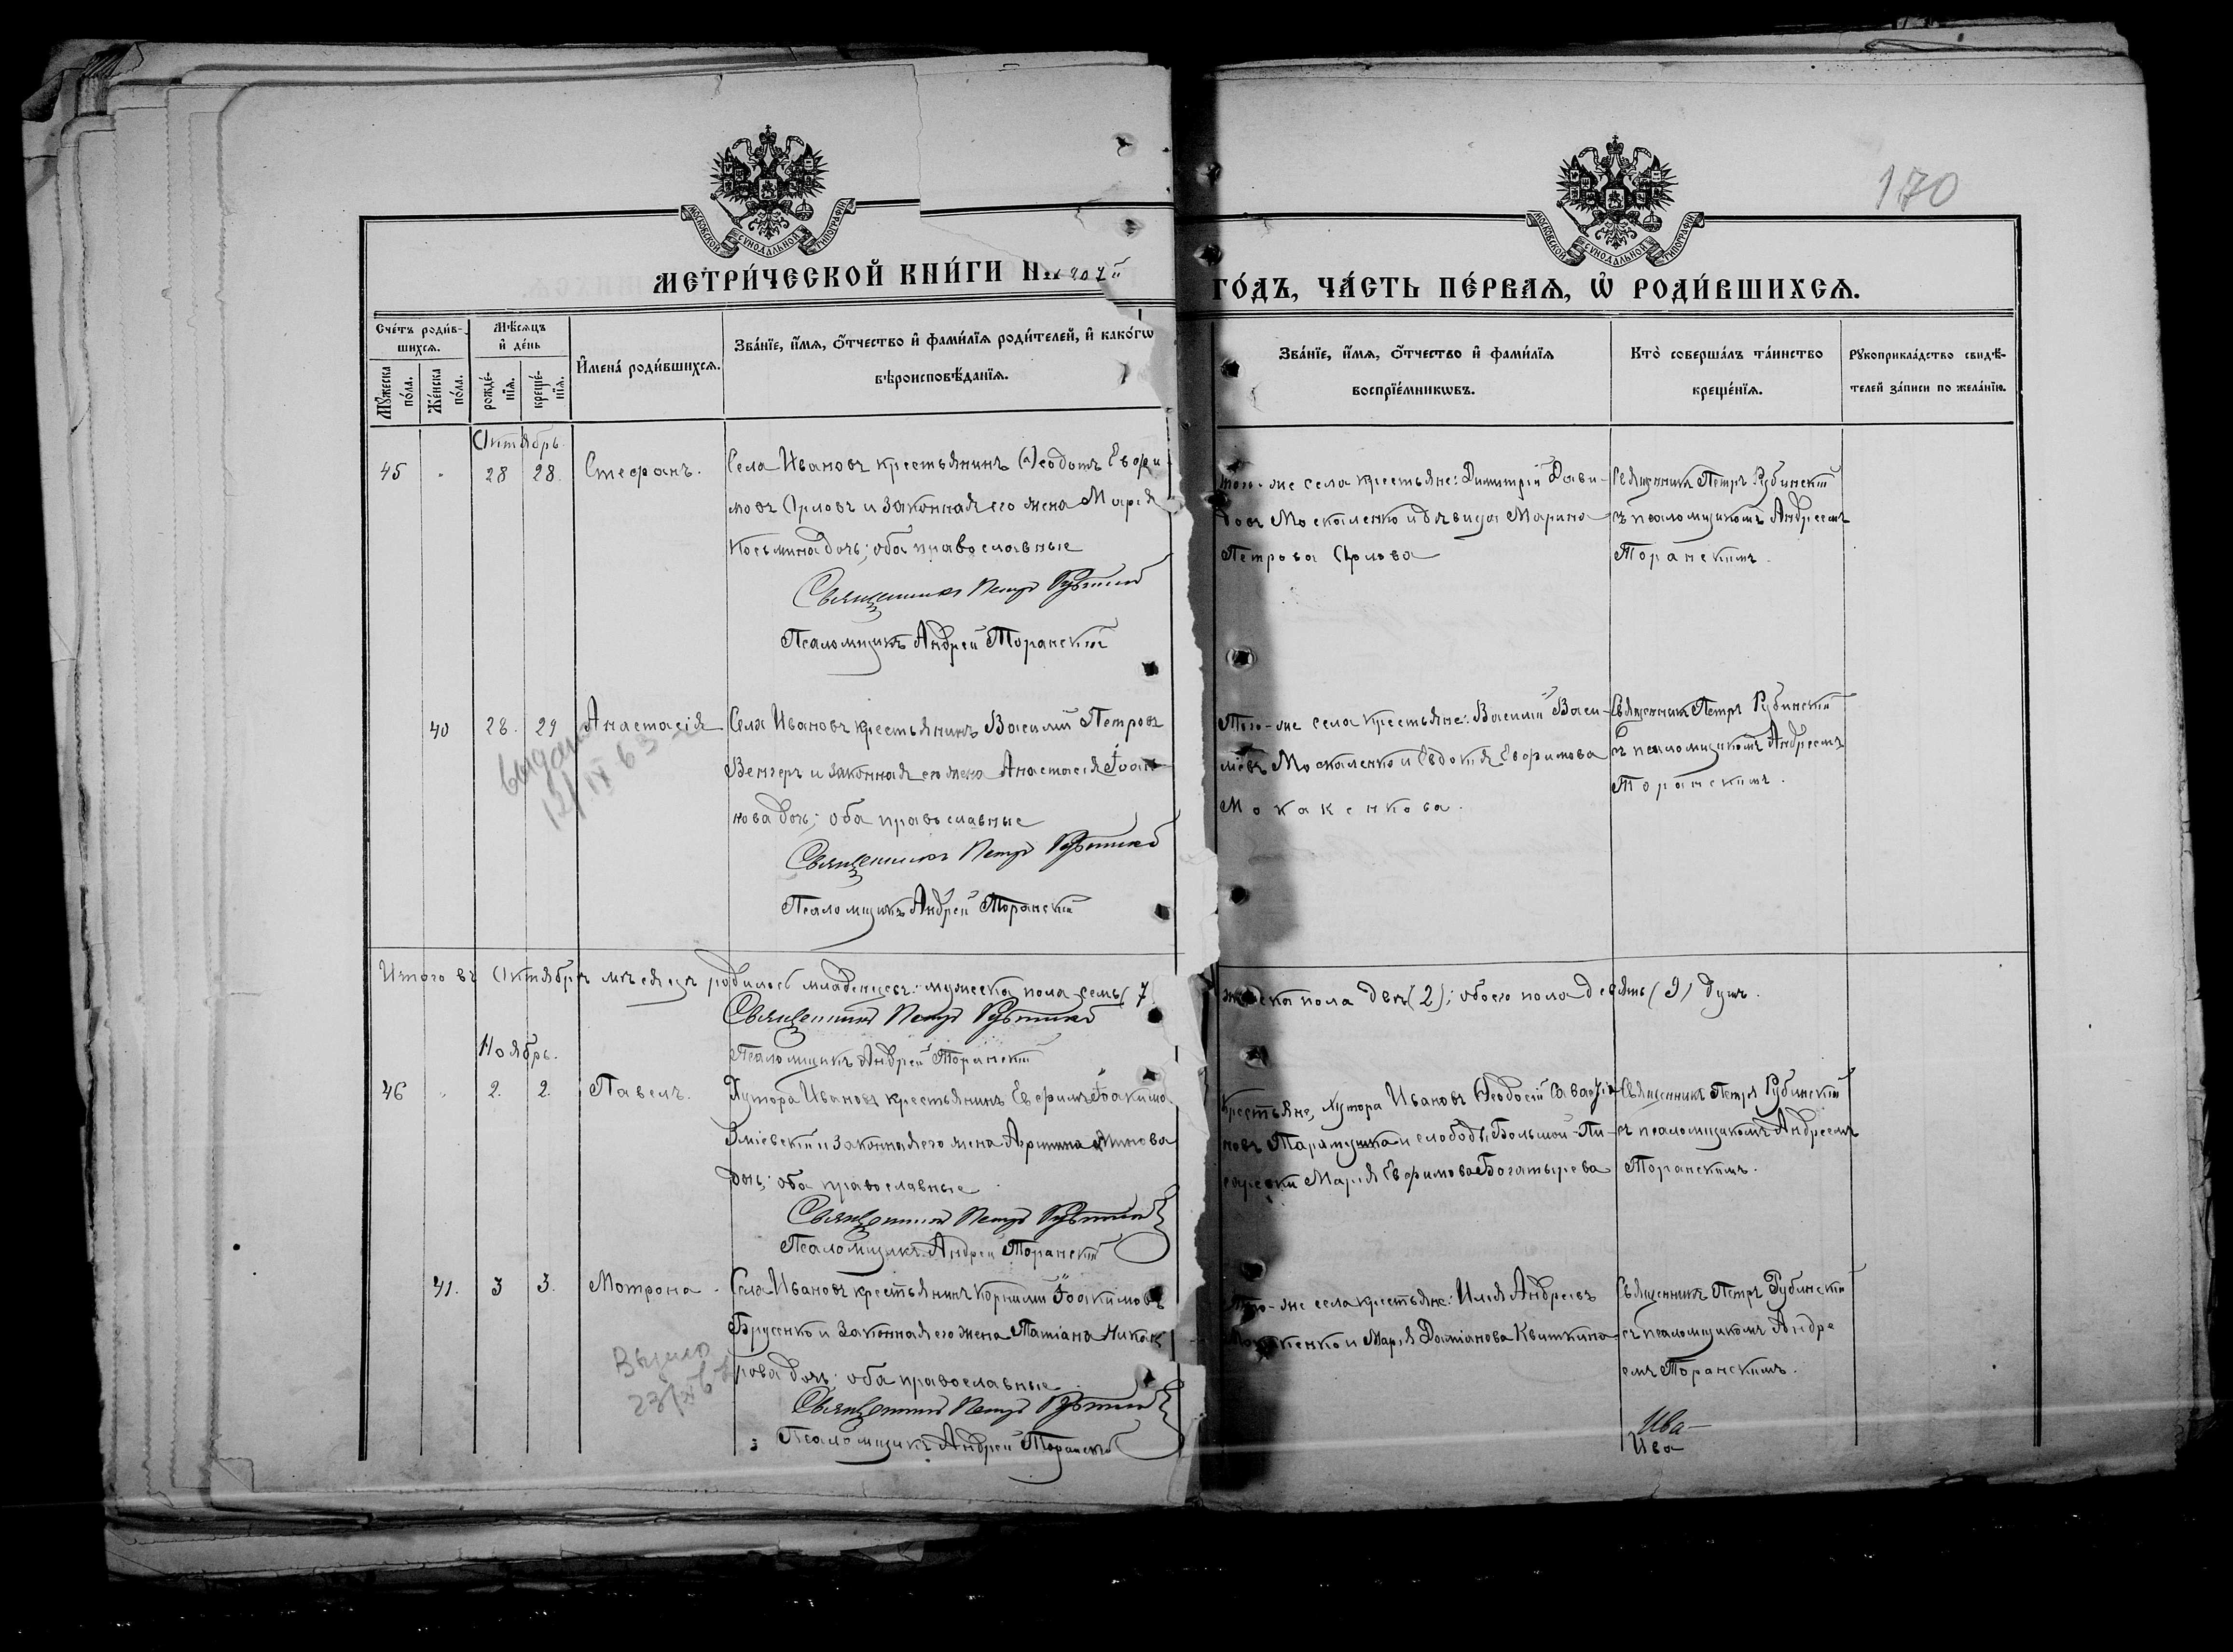 170
МОСКОВСКОЙ СѴНОДАЛЬНОЙ ТИПОГРАФІИ
МОСКОВСКОЙ СѴНОДАЛЬНОЙ ТИПОГРАФІИ
МЕТРИ́ЧЕСКОЙ КНИ́ГИ
ГО́ДЪ, ЧА́СТЬ ПЕ́РВАѦ, Ѡ҆ РОДИ́ВШИХСѦ.
Сче́тъ роди́в-
шихсѧ.
Мѣ́сѧцъ
и҆ де́нь
Мꙋ́жеска
по́ла.
Же́нска
по́ла.
рожде́-
нїѧ.
креще́-
нїѧ.
И҆мена̀ роди́вшихсѧ.
Зва́нїе, и҆́мѧ, ѻ҆́тчество и҆ фами́лїѧ роди́телей, и҆ како́гѡ
вѣроисповѣ́данїѧ.
Зва́нїе, и҆́мѧ, ѻ҆́тчество и҆ фами́лїѧ
воспрїе́мникѡвъ.
Кто̀ соверша́лъ та́инство
креще́нїѧ.
Рꙋкоприкла́дство свидѣ́-
телей за́писи по жела́нїю.
Октябрь
45 " 28 28 Стефанъ.
Села Ивановъ крестьянинъ Ѳеодотъ Ефри-
мовъ Орловъ и законная его жена Марія
Косьмина дочь; оба православные
Священникъ Петръ Рубинскій
Псаломщикъ Андрей Торанскій
того-же села крестьяне: Димитрій Дави-
довъ Москаленко и дѣвица Марина
Петрова Орлова
Священникъ Петръ Рубинскій
съ псаломщикомъ Андреемъ
Торанскимъ.
40 28. 29 Анастасія
выдано
12/IX 63
Села Ивановъ крестьянинъ Василій Петровъ
Венгеръ и законная его жена Анастасія Іоан-
нова дочь; оба православные
Священникъ Петръ Рубинскій
Псаломщикъ Андрей Торанскій
Того-же села крестьяне: Василій Васи-
ліевъ Москаленко и Евдокія Ефримова
Мокакенкова.
Священникъ Петръ Рубинскій
съ псаломщикомъ Андреемъ
Торанскимъ.
Итого въ Октябрѣ мѣсяцѣ родилось младенцевъ: мужеска пола семь (7)
женска пола двѣ (2); обоего пола девять (9) душъ.
Священникъ Петръ Рубинскій
Псаломщикъ Андрей Торанскій
Ноябрь.
46 " 2. 2. Павелъ.
Хутора Ивановъ крестьянинъ Ефримъ Іоакимовъ
Зміевскій и законная его жена
дочь; оба православные
Священникъ Петръ Рубинскій
Псаломщикъ Андрей Торанскій
Крестьяне, хутора Ивановъ Ѳеодосій
новъ и слободы Большой-Пи-
саревки Марія Ефримова Богатырева
Священникъ Петръ Рубинскій
съ псаломщикомъ Андреемъ
Торанскимъ.
41. 3 3. Мотрона.
Села Ивановъ крестьянинъ Корнилій Іоакимовъ
Брусенко и законная его жена Татіана Никан-
рова дочь; оба православные
Священникъ Петръ Рубинскій
Псаломщикъ Андрей Торанскій
Того-же села крестьяне: Илія Андреевъ
Мокакенко и Марія Даміанова Квиткина
Священникъ Петръ Рубинскій
съ псаломщикомъ Андре
емъ Торанскимъ.
Ива-
Ива